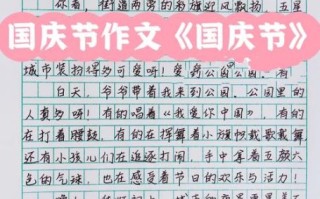 你看，街道两旁的彩旗迎风飘扬，五星
国庆节作文《国庆节》
城市装扮得多可爱呀！爱的公园公园。有
白天，爷爷带着我来到公园，公园里的
人真多呀！有的唱着《我爱你中国》，有的
在打着腰鼓，有的在挥舞着小旗帜载歌载舞
还有小孩儿们在追逐打闹，手中拿着五颜六
色的气球，也在感受着节日的欢乐与活力！